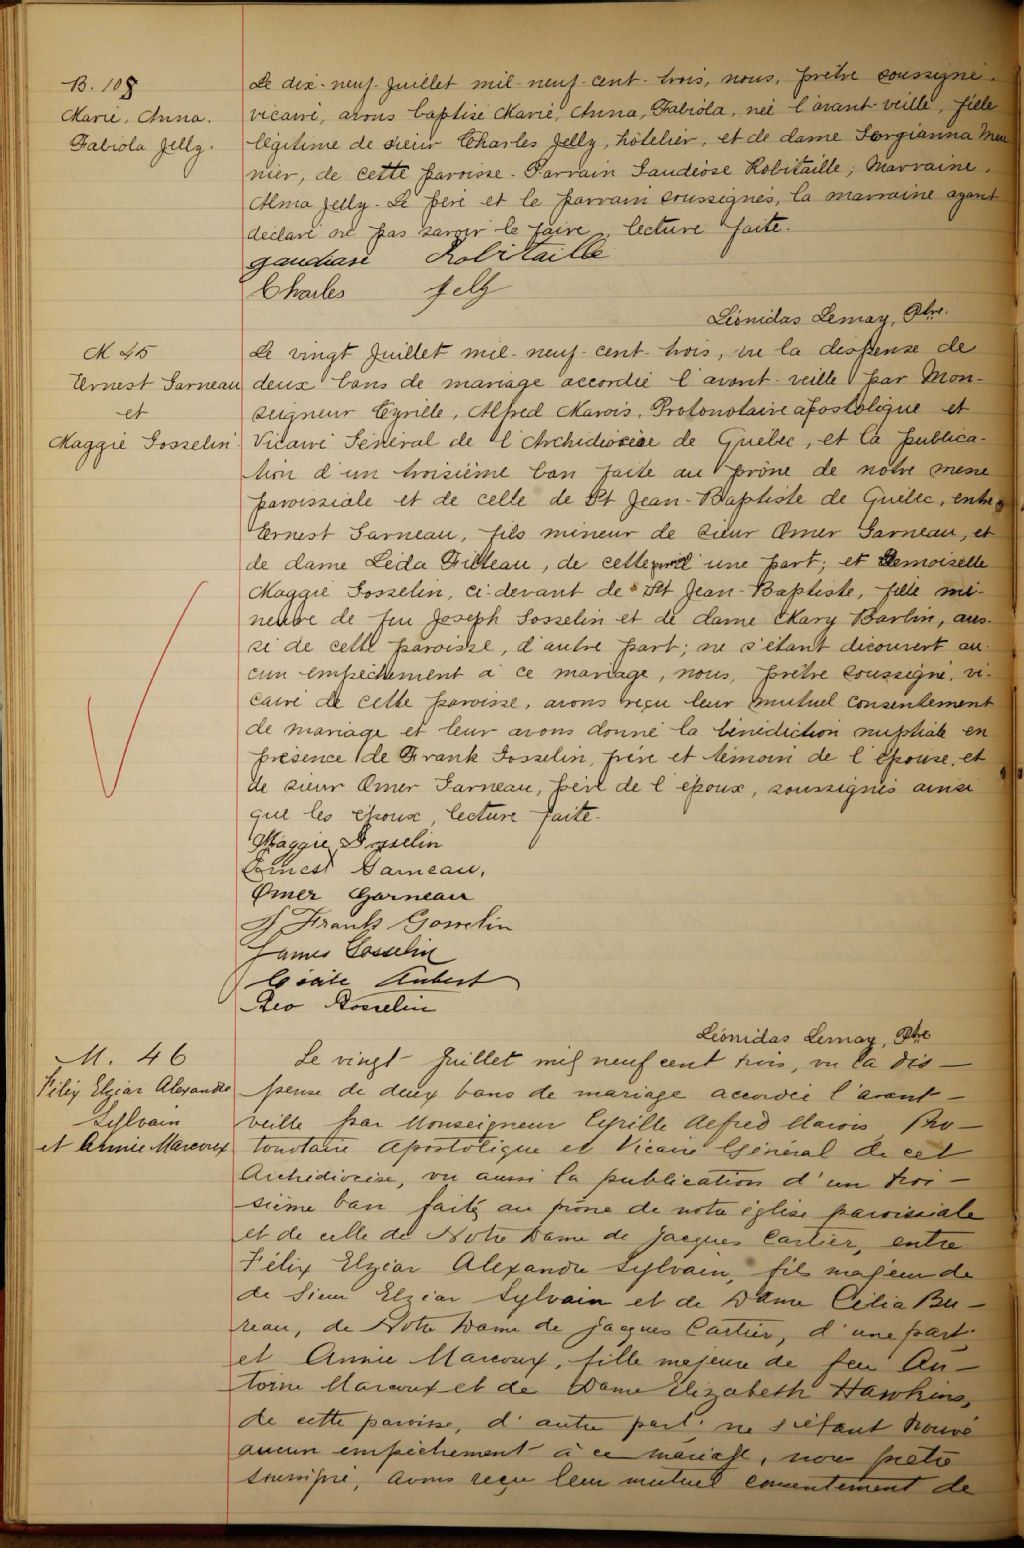 B. 108
Marie, Anna.
Fabiola Jelly.
Le dix-neuf Juillet mil-neuf-cent-trois, nous, prêtre soussigné,
vicaire, avons baptisé Marie, Anna, Fabiola, née l'avant-veille, fille
légitime de sieur Charles Jelly, hôtelier, et de dame Georgianna Meu
nier, de cette paroisse. Parrain Gaudiose Robitaille; Marraine,
Alma Jelly. Le père et le parrain soussignés, la marraine ayant
déclaré ne pas savoir le faire, lecture faite.
gaudiase Robitaille
Charles Jelly
Léonidas Lemay, Ptre.
M 45
Ernest Garneau
et
Maggie Gosselin
Le vingt Juillet mil-neuf-cent-trois, vu la dispense de
deux bans de mariage accordée l'avant-veille par Mon-
seigneur Cyrille, Alfred Marois, Protonotaire apostolique et
Vicaire Général de l'Archidiocèse de Québec, et la publica-
tion d'un troisième ban faite au prône de notre messe
paroissiale et de celle de St Jean-Baptiste de Québec, entre
Ernest Garneau, fils mineur de sieur Omer Garneau, et
de dame Léda Filteau, de cette d'une part; et Demoiselle
Maggie Gosselin, ci-devant de St Jean-Baptiste, fille mi-
neure de feu Joseph Gosselin et de dame Mary Barlin, aus-
si de cette paroisse, d'autre part; ne s'étant découvert au-
cun empêchement à ce mariage, nous, prêtre soussigné, vi-
caire de cette paroisse, avons reçu leur mutuel consentement
de mariage et leur avons donné la bénédiction nuptiale en
présence de Frank Gosselin, frère et témoin de l'épouse, et
de sieur Omer Garneau, père de l'époux, soussignés ainsi
que les époux, lecture faite.
Maggie Gosselin
Ernest Garneau,
Omer Garneau
J Frank Gosselin
James Gosselin
Cécile Aubert
Leo Gosselin
Léonidas Lemay, Ptre
M. 46
Félix Elzéar Alexandre
Sylvain
et Annie Marcoux
Le vingt Juillet mil neuf cent trois, vu la dis-
pense de deux bans de mariage accordée l'avant-
veille par Monseigneur Cyrille Alfred Marois Pro-
tonotaire Apostolique et Vicaire Général de cet
Archidiocèse, vu aussi la publication d'un troi-
sième ban faite au prône de notre église paroissiale
et de celle de Notre Dame de Jacques Cartier, entre
Félix Elzéar Alexandre Sylvain, fils majeur de
de Sieur Elzéar Sylvain et de Dame Célia Bu-
reau, de Notre Dame de Jacques Cartier, d'une part;
et Annie Marcoux, fille majeure de feu An-
toine Marcoux et de Dame Elizabeth Hawkins,
de cette paroisse, d'autre part; ne s'étant trouvé
aucun empêchement à ce mariage, nous prêtre
soussigné, avons reçu leur mutuel consentement de